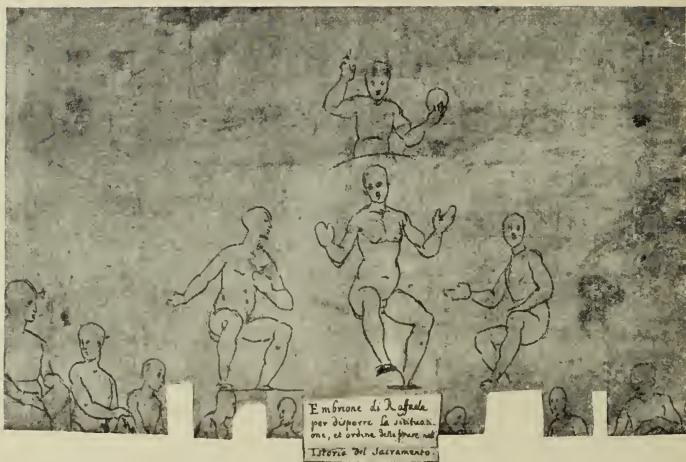 Embrione di Rafaele
per disporre la situazi-
one, et ordine delle figure nell
Istoria del Sacramento.